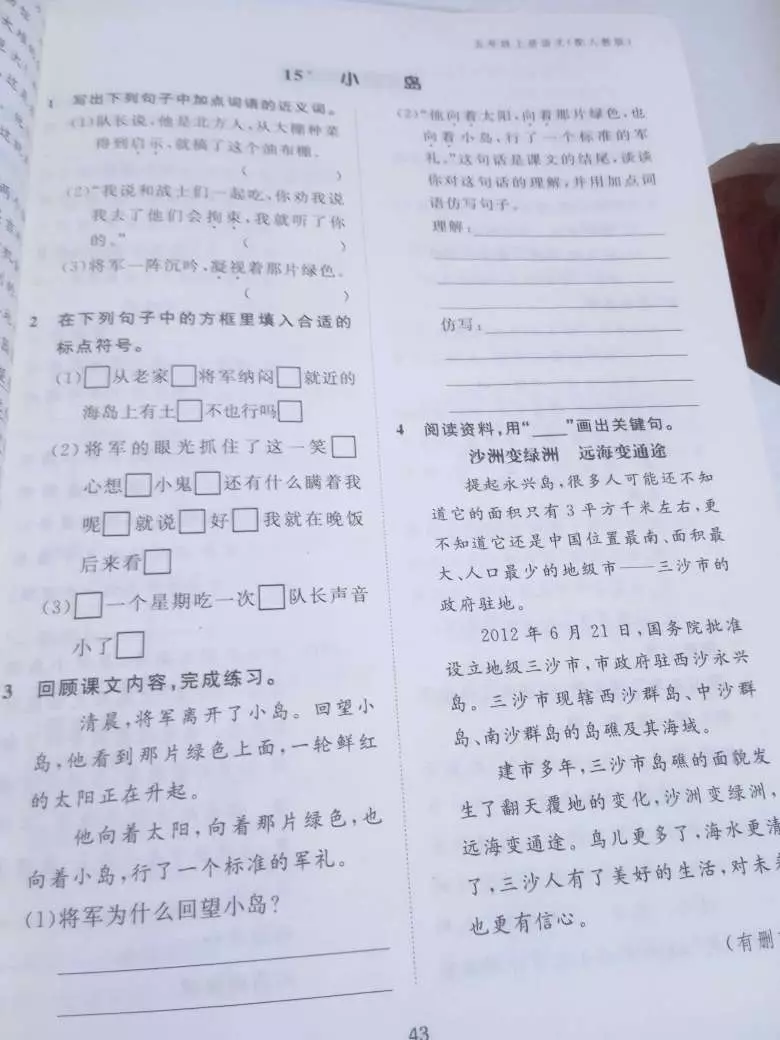 五年级上册语文(配人教版)
15* 小 岛
1 写出下列句子中加点词语的近义词。
(1)队长说,他是北方人,从大棚种菜
得到启示,就搞了这个油布棚。
( )
(2)“我说和战士们一起吃,你劝我说
我去了他们会拘束,我就听了你
的。” ( )
(3)将军一阵沉吟,凝视着那片绿色。
( )
2 在下列句子中的方框里填入合适的
标点符号。
(1)□从老家□将军纳闷□就近的
海岛上有土□不也行吗□
(2)将军的眼光抓住了这一笑□
心想□小鬼□还有什么瞒着我
呢□就说□好□我就在晚饭
后来看□
(3)□一个星期吃一次□队长声音
小了□
3 回顾课文内容,完成练习。
清晨,将军离开了小岛。回望小
岛,他看到那片绿色上面,一轮鲜红
的太阳正在升起。
他向着太阳,向着那片绿色,也
向着小岛,行了一个标准的军礼。
(1)将军为什么回望小岛?
(2)“他向着太阳,向着那片绿色,也
向着小岛,行了一个标准的军
礼。”这句话是课文的结尾,谈谈
你对这句话的理解,并用加点词
语仿写句子。
理解:
仿写:
4 阅读资料,用“____”画出关键句。
沙洲变绿洲 远海变通途
提起永兴岛,很多人可能还不知
道它的面积只有 3 平方千米左右,更
不知道它还是中国位置最南、面积最
大、人口最少的地级市——三沙市的
政府驻地。
2012 年 6 月 21 日,国务院批准
设立地级三沙市,市政府驻西沙永兴
岛。三沙市现辖西沙群岛、中沙群
岛、南沙群岛的岛礁及其海域。
建市多年,三沙市岛礁的面貌发
生了翻天覆地的变化,沙洲变绿洲,
远海变通途。鸟儿更多了,海水更清
了,三沙人有了美好的生活,对未来
也更有信心。
(有删
43